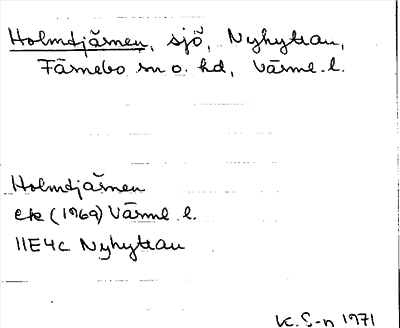 Holmtjärnen, sjö, Nyhyttan,
Färnebo sn o. hd, Värml. l.
Holmtjärnen
ek (1969) Värml. l.
11E4c Nyhyttan
K. S-n 1971